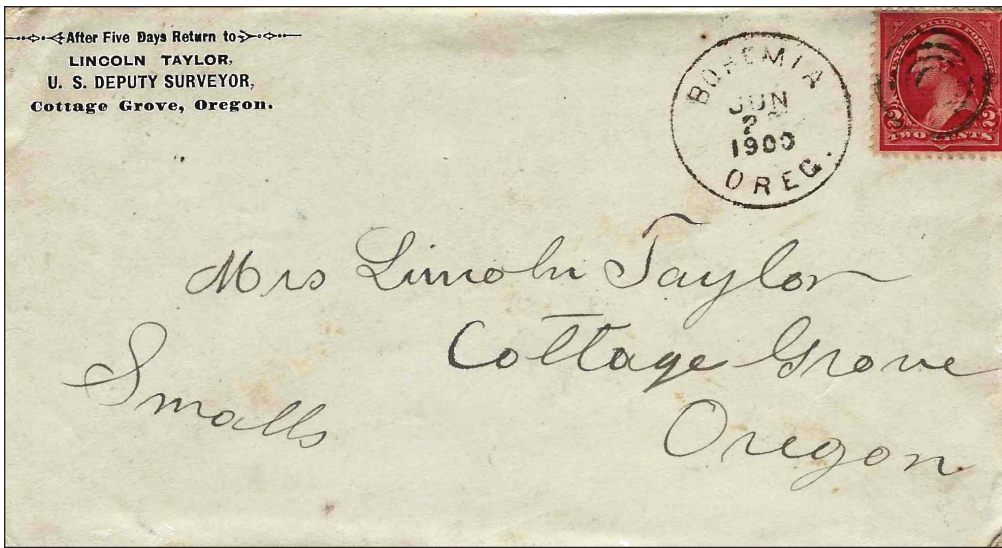 After Five Days Return to
LINCOLN TAYLOR,
U. S. DEPUTY SURVEYOR,
Cottage Grove, Oregon.
BOHEMIA
JUN
2
1900
OREG.
UNITED STATES POSTAGE
2 2
TWO CENTS
Mrs Lincoln Taylor
Cottage Grove
Smalls
Oregon